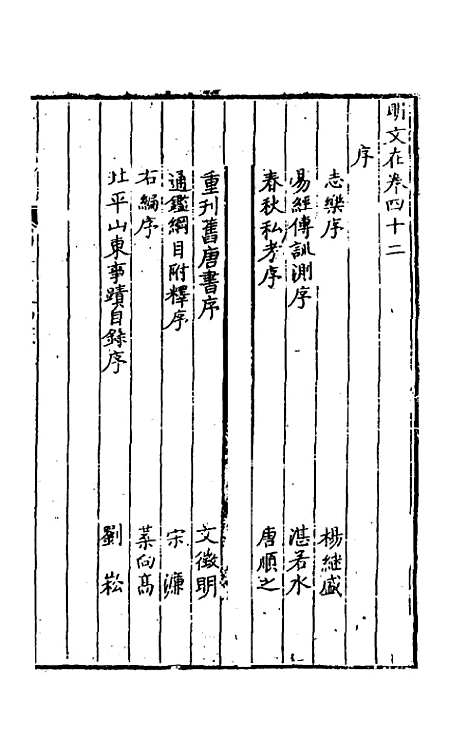 明文在卷四十二
序
志樂序 楊繼盛
易經傳訓測序 湛若水
春秋私考序 唐順之
重刊舊唐書序 文徵明
通鑑綱目附釋序 宋濂
右編序 葉向高
北平山東事蹟目錄序 劉崧